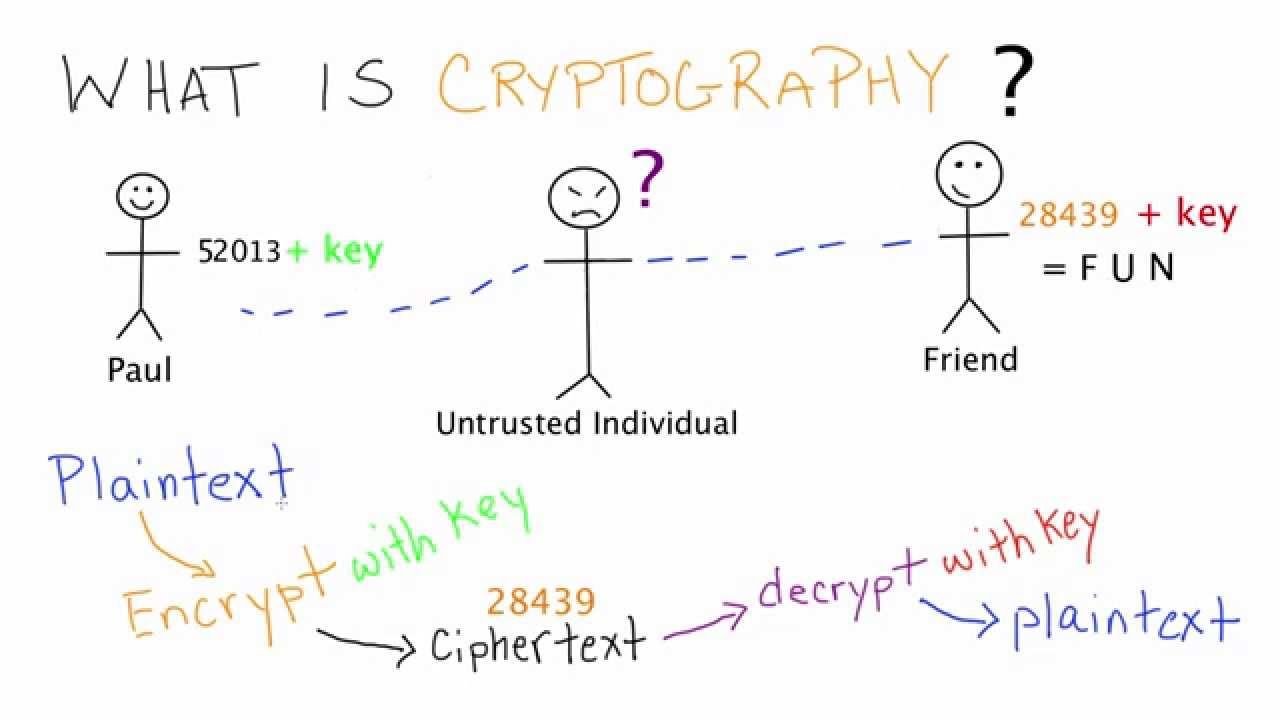 WHAT IS CRYPTOGRAPHY ?
?
52013 + key
28439 + key
= F U N
Paul
Untrusted Individual
Friend
Plaintext
Encrypt with key
28439
Ciphertext
decrypt with key
plaintext